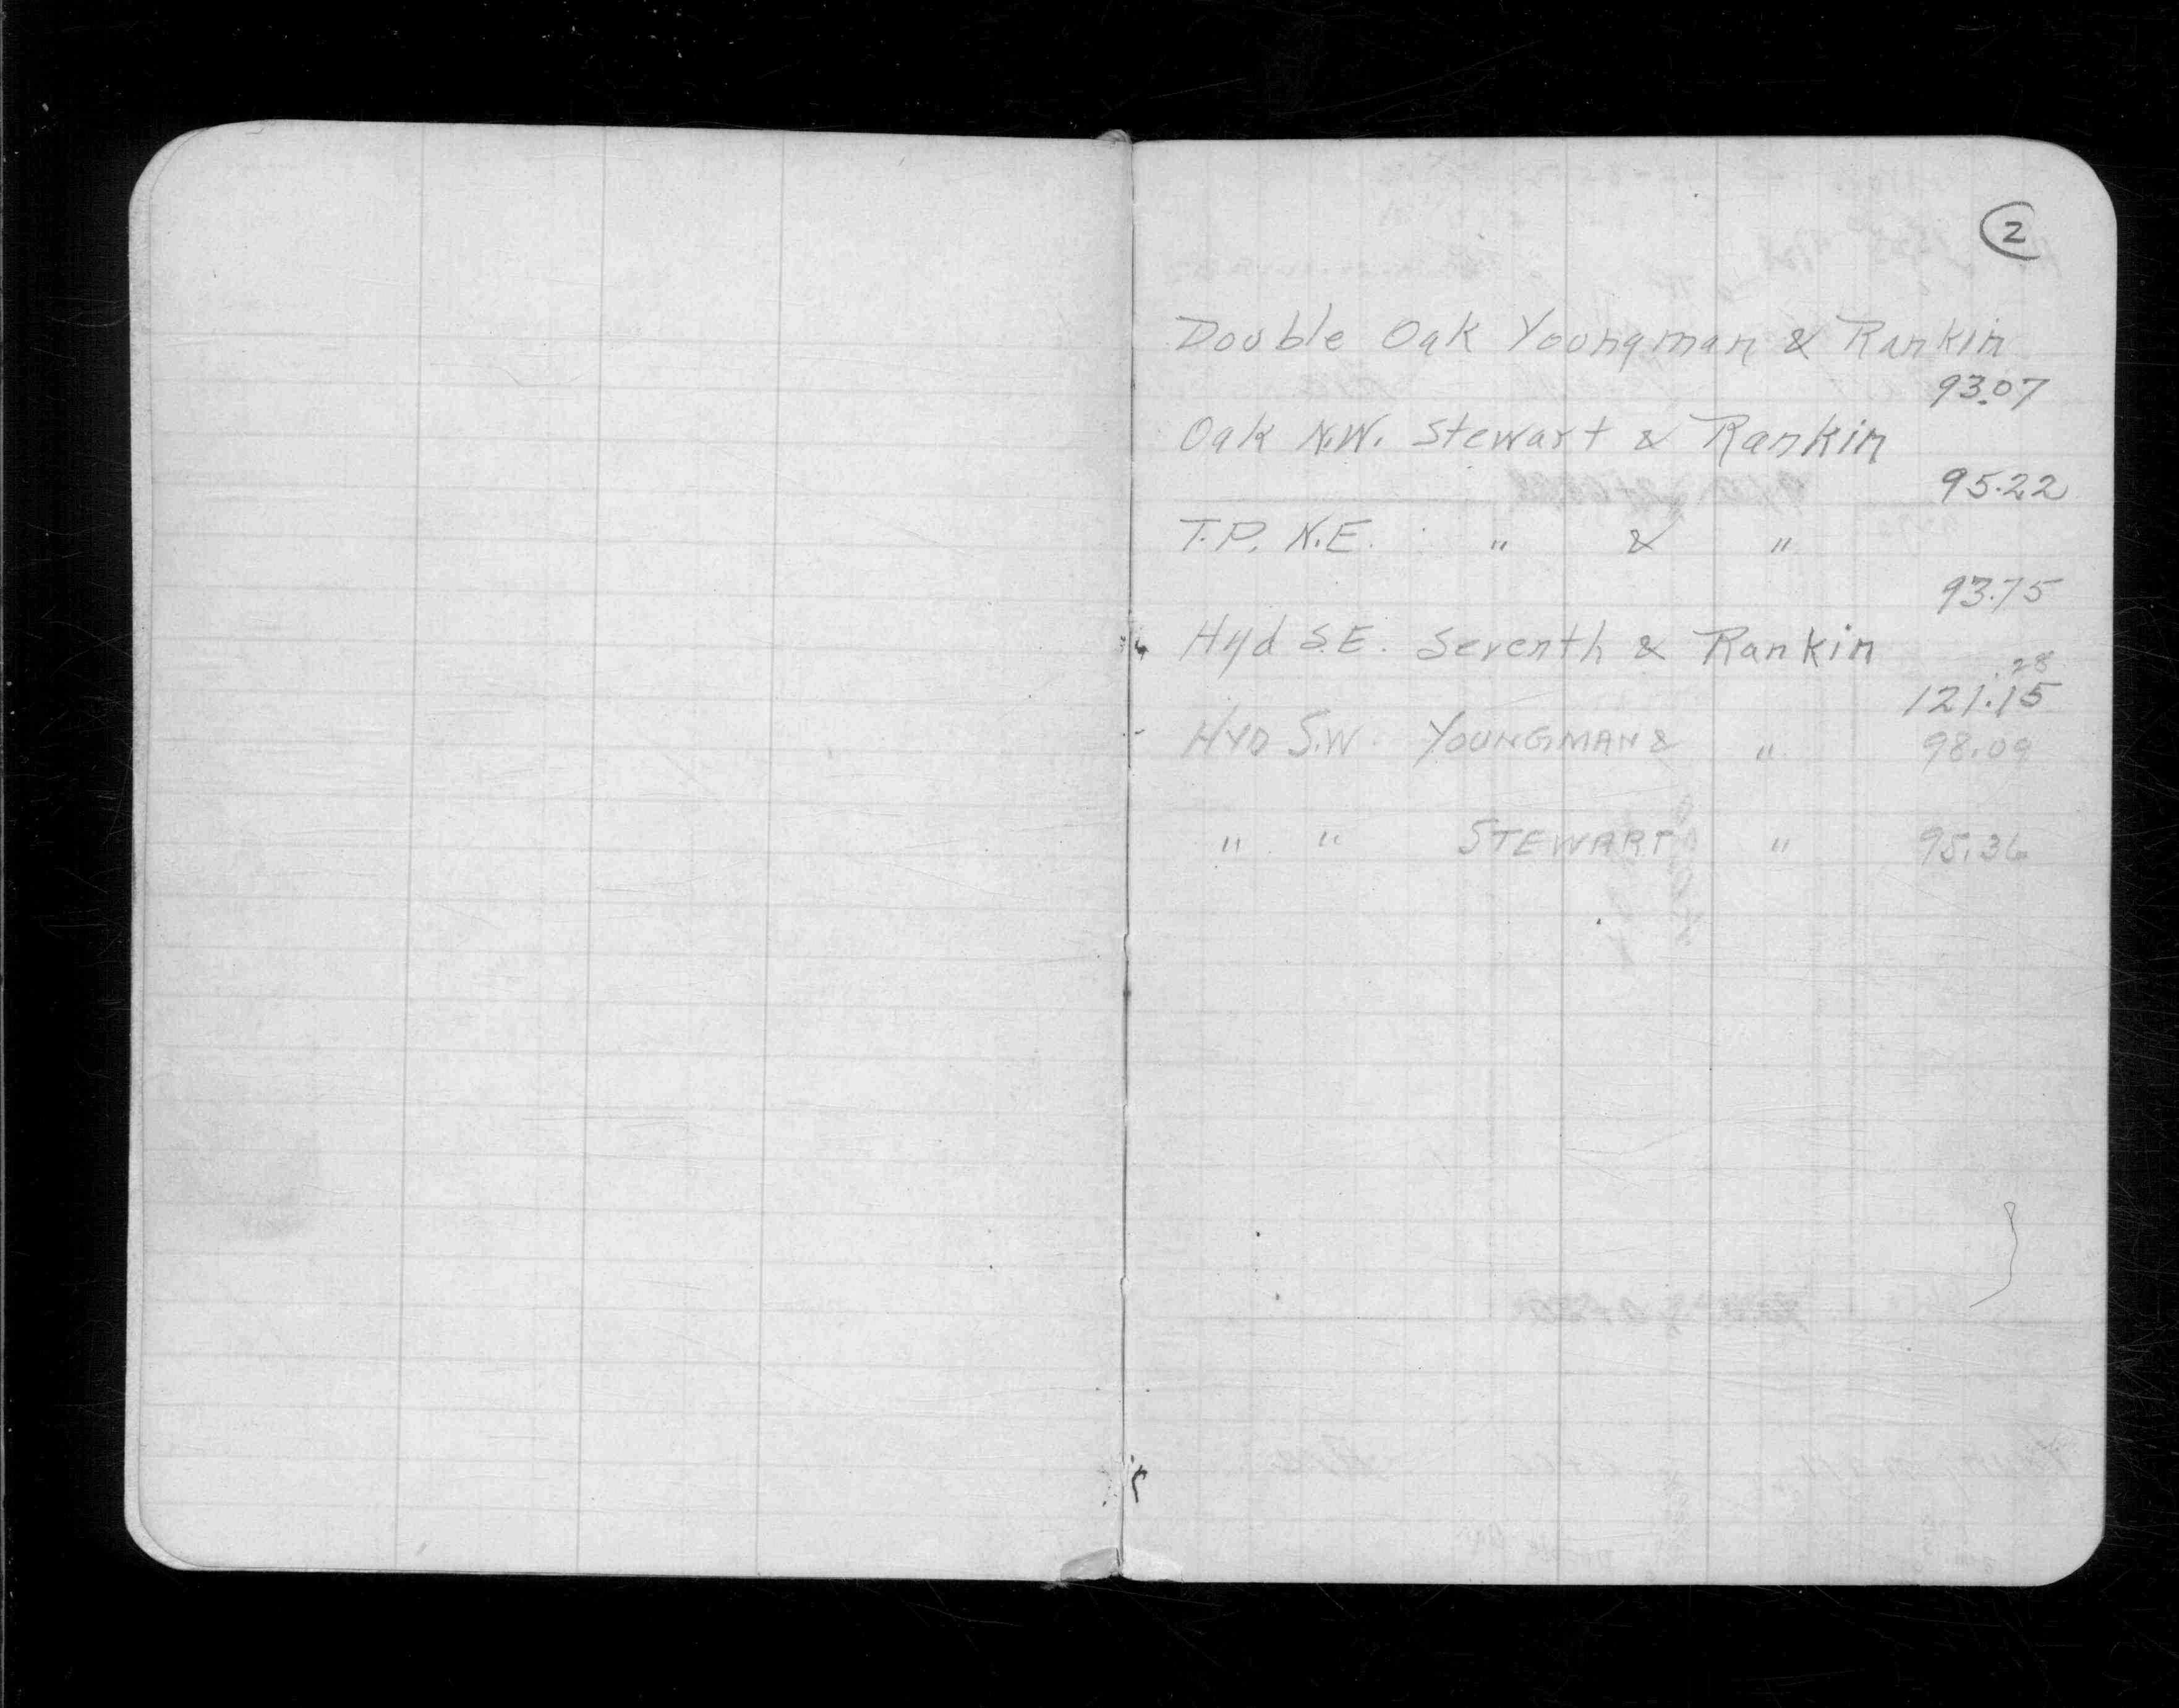 2
Double Oak Youngman & Rankin
93.07
Oak N.W. Stewart & Rankin
95.22
T.P. N.E. " & "
93.75
Hyd S.E. Seventh & Rankin
.28
121.15
HYD S.W. YOUNGMAN & " 98.09
" " STEWART " 95.36